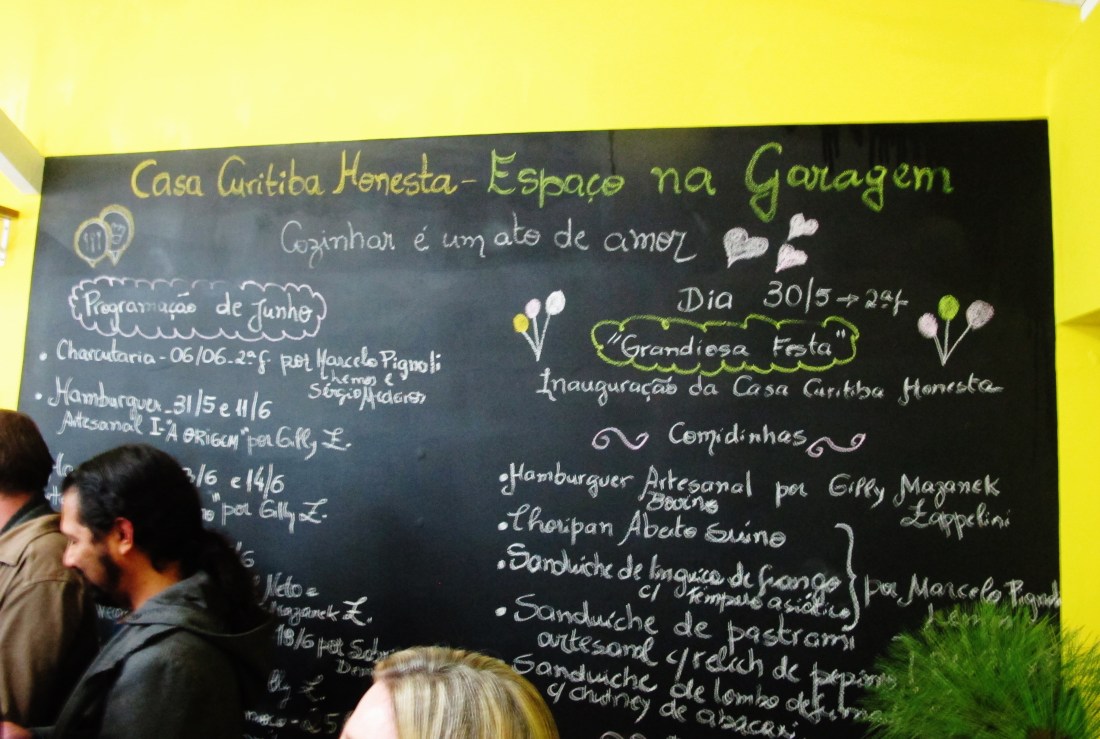 Casa Curitiba Honesta - Espaço na Garagem
Cozinhar é um ato de amor
Programação de Junho
• Charcutaria - 06/06 - 2ªf por Marcelo Pignoli
Lhemos e
Sérgio
• Hamburguer - 31/5 e 11/6
Artesanal I - "A ORIGEM" por Gilly Z.
3/6 e 14/6
" por Gilly Z.
Neto =
Mazanek Z.
18/6 por
Z.
Dia 30/5 → 2ªf
"Grandiosa Festa"
Inauguração da Casa Curitiba Honesta
Comidinhas
• Hamburguer Artesanal por Gilly Mazanek
Bovino Zappelini
• Choripan Abeto Suíno
• Sanduíche de linguiça de frango
c/ tempero asiático
por Marcelo
• Sanduíche de pastrami
artesanal c/ relich de pepino
Sanduiche de lombo
c/ chutney de abacaxi